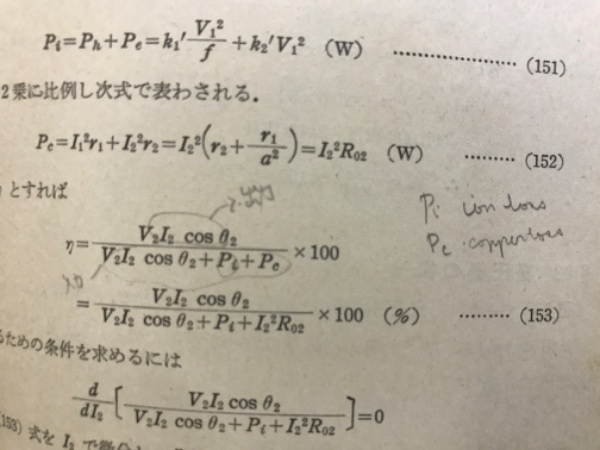 P_i=P_h+P_e=k_1'\frac{V_1^2}{f}+k_2'V_1^2 (W) ………………… (151)
2乗に比例し次式で表わされる.
P_c=I_1^2r_1+I_2^2r_2=I_2^2(r_2+\frac{r_1}{a^2})=I_2^2R_{02} (W) ……… (152)
とすれば
P_i iron loss
η=\frac{V_2I_2 cos θ_2}{V_2I_2 cos θ_2+P_i+P_c}×100
P_c copper loss
=\frac{V_2I_2 cos θ_2}{V_2I_2 cos θ_2+P_i+I_2^2R_{02}}×100 (%) ……… (153)
るための条件を求めるには
\frac{d}{dI_2}[\frac{V_2I_2 cos θ_2}{V_2I_2 cos θ_2+P_i+I_2^2R_{02}}]=0
(153) 式を I_2 で微分